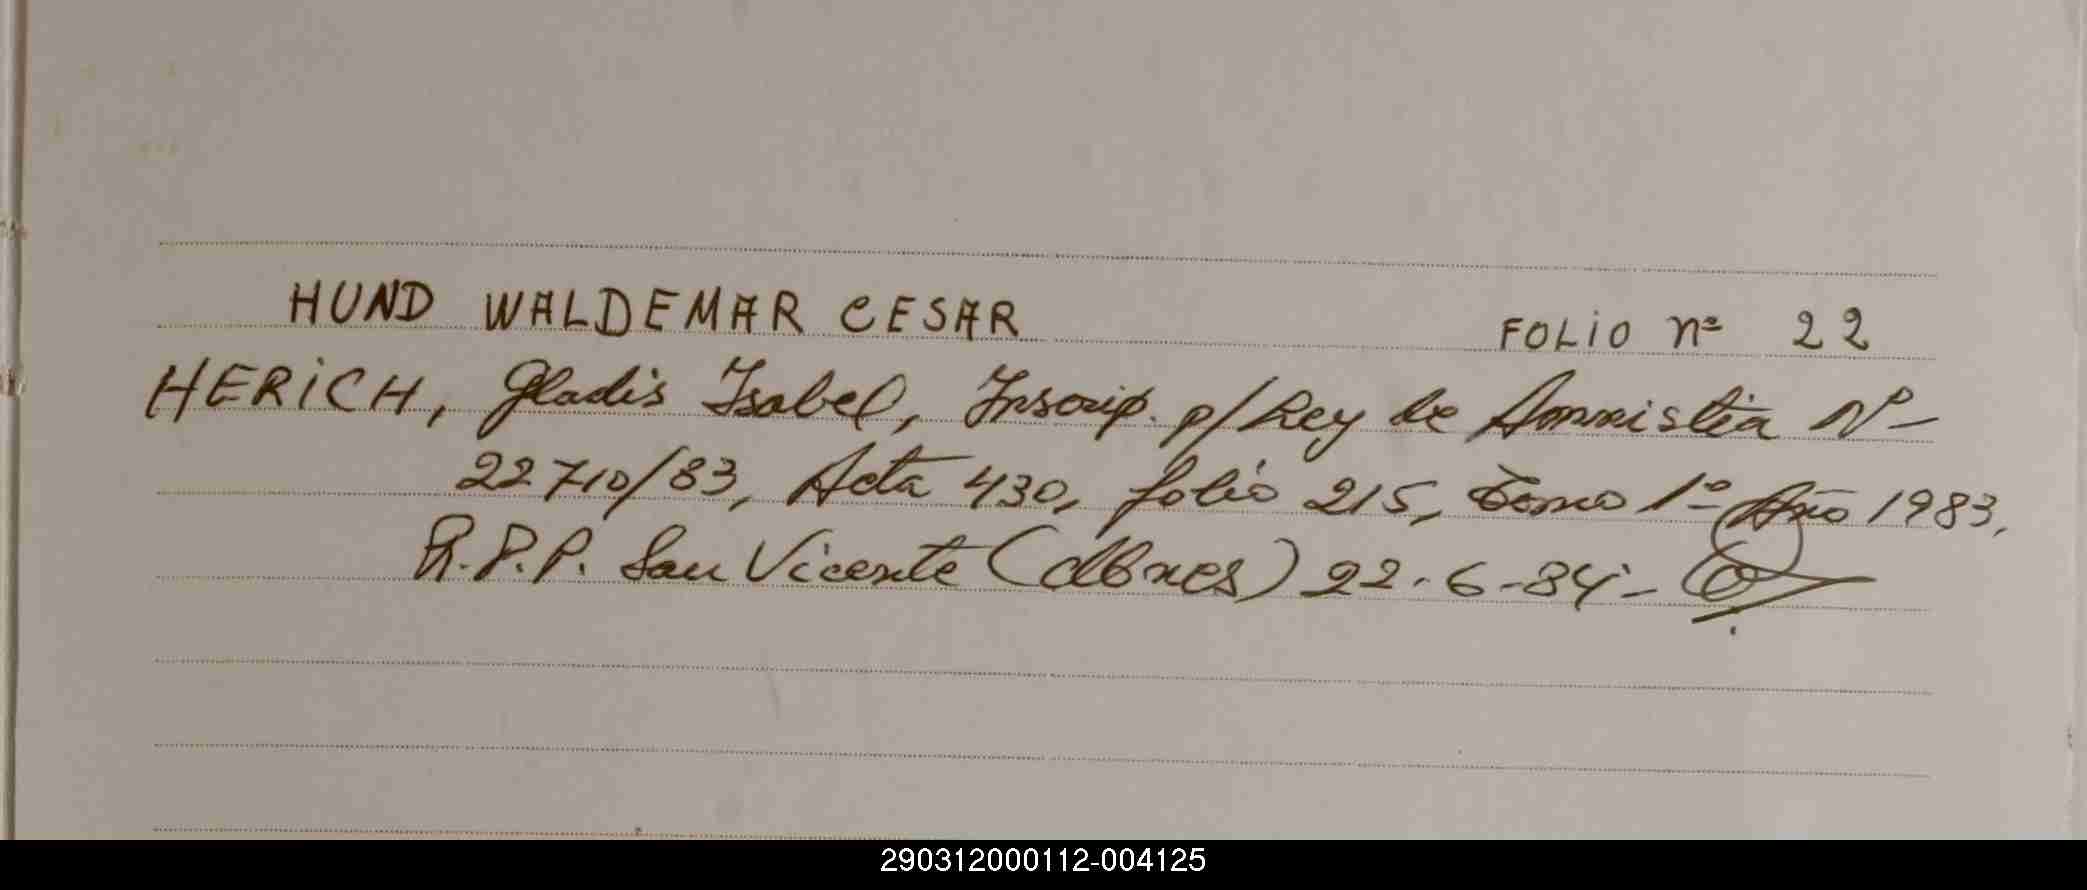 HUND WALDEMAR CESAR FOLIO Nº 22
HERICH, Gladis Isabel, Inscrip. p/Ley de Amnistia Nº-
22710/83, Acta 430, folio 215, Tomo 1º Año 1983,
R.P.P. San Vicente (Mnes) 22-6-84-
290312000112-004125